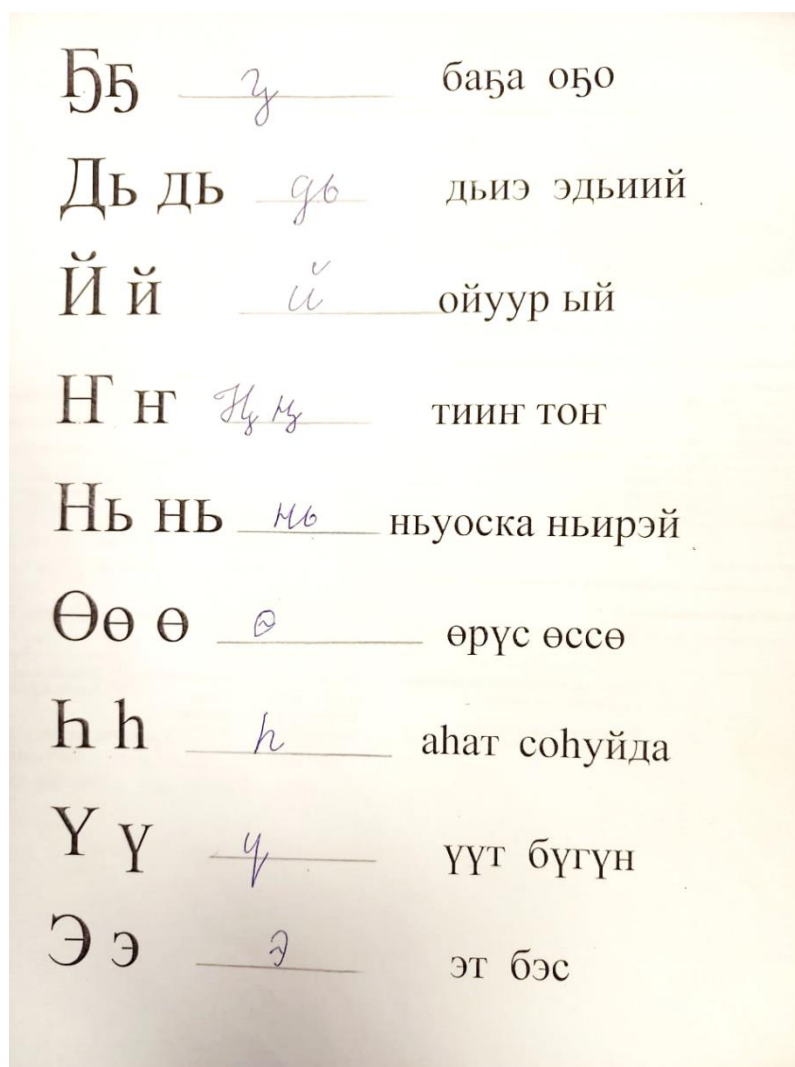 Ҕҕ ꚉ баҕа оҕо
Дь дь дь дьиэ эдьиий
Й й й ойуур ый
Ҥ ҥ Ң ң тииҥ тоҥ
Нь нь нь ньуоска ньирэй
Өө ө ө өрүс өссө
Һ һ һ аһат соһуйда
Ү ү ү үүт бүгүн
Э э э эт бэс